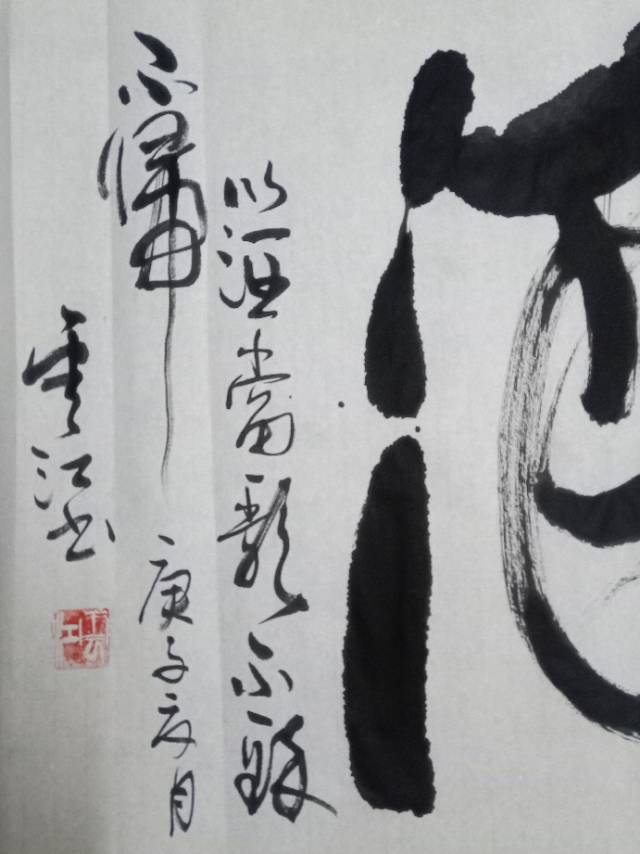 以酒當歌不醉
不歸
庚子夏月
雲江书